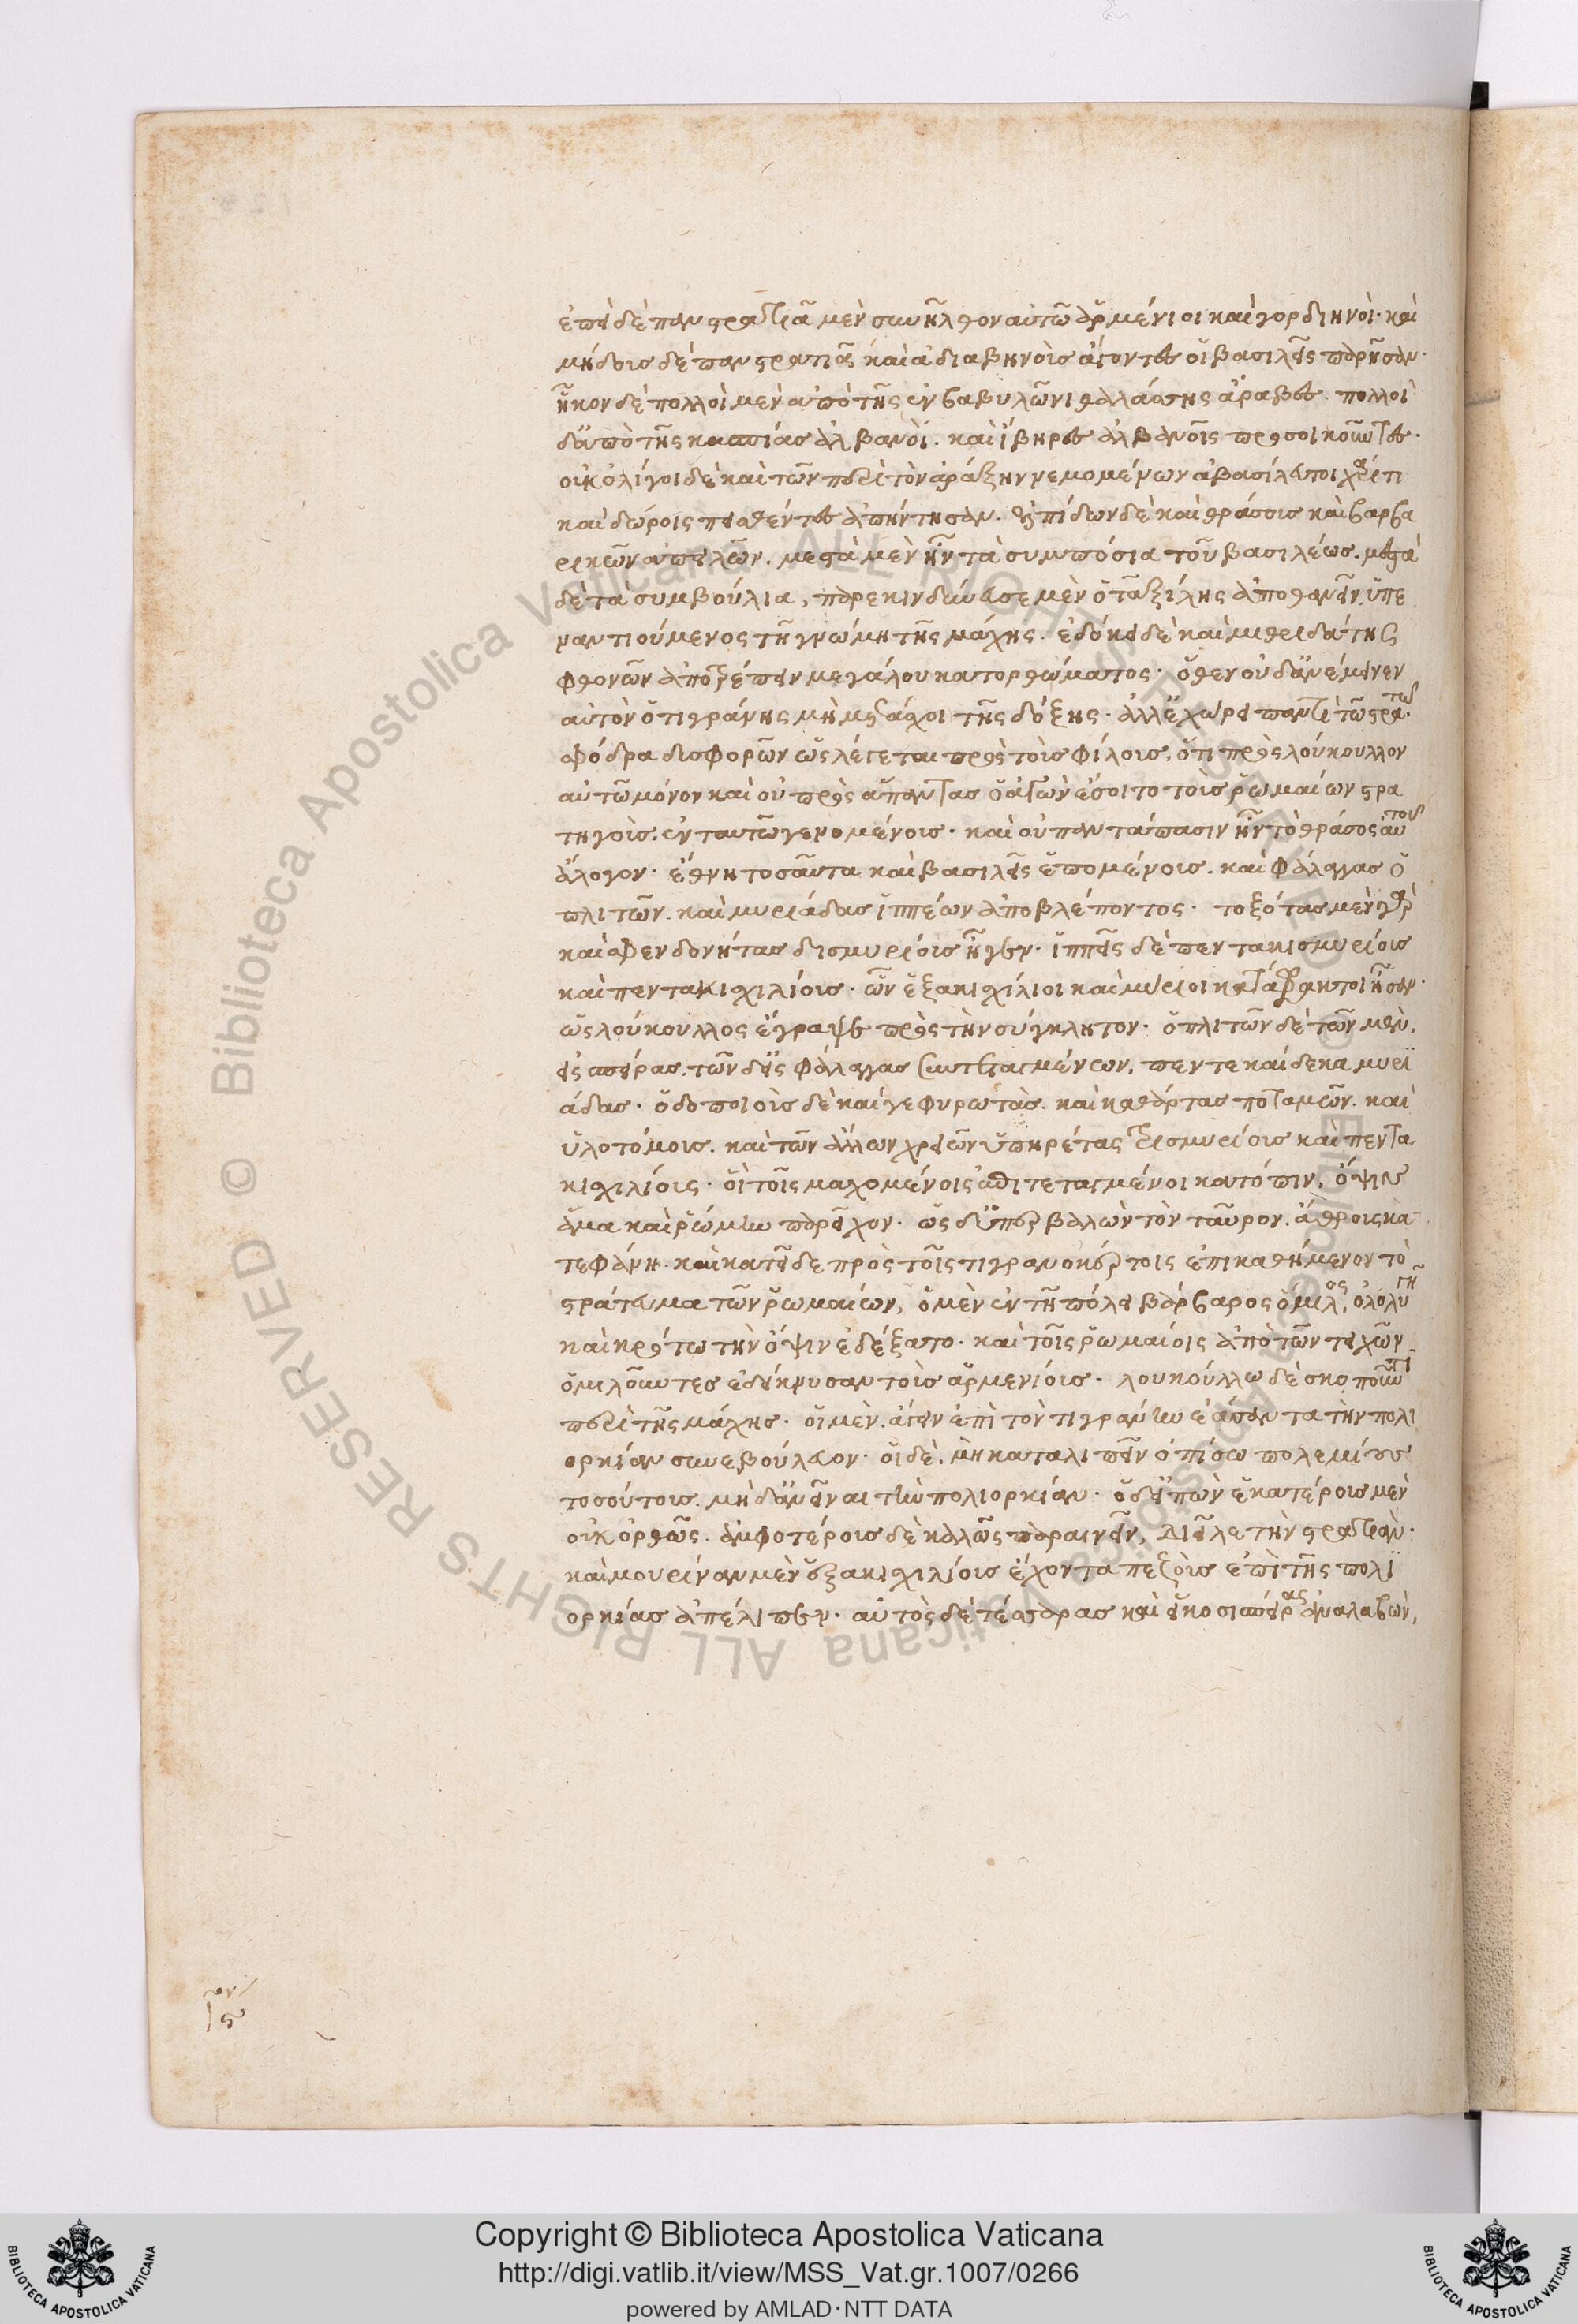 ἐπεὶ δὲ πανστρατιᾷ μὲν συνῆλθον αὐτῶ ἀρμένιοι καὶ γορδιηνοὶ· καὶ
μήδους δὲ πανστρατιᾷ καὶ ἀδιαβηνοὺς ἄγοντες οἱ βασιλεῖς παρῆσαν·
ἧκον δὲ πολλοὶ μὲν ἀπὸ τῆς ἐν βαβυλῶνι θαλάσσης ἄραβες. πολλοὶ
δ' ἀπὸ τῆς κασπίας ἀλβανοὶ. καὶ ἴβηρες ἀλβανοῖς προσοικοῦντες.
οὐκ ὀλίγοι δὲ καὶ τῶν περὶ τὸν ἀράξην νεμομένων ἀβασίλευτοι χάριτι
καὶ δώροις πεισθέντες ἀπήντησαν. ἐλπίδων δὲ καὶ θράσους καὶ βαρβα
ρικῶν ἀπειλῶν. μεστὰ μὲν ἦν τὰ συμπόσια τοῦ βασιλέως. μεστὰ
δὲ τὰ συμβούλια, παρεκινδύνευσε μὲν ὁ ταξίλης ἀποθανεῖν ὑπε
ναντιούμενος τῆ γνώμη τῆς μάχης. ἐδόκει δὲ καὶ μιθριδάτης
φθονῶν ἀποτρέπειν μεγάλου κατορθώματος· ὅθεν οὐδ' ἀνέμεινεν
αὐτὸν ὁ τιγράνης μὴ μετάσχοι τῆς δόξης. ἀλλ' ἐχώρει παντὶ τῶ στρατῶ·
σφόδρα δυσφορῶν ὡς λέγεται πρὸς τοὺς φίλους, ὅτι πρὸς λούκουλλον
αὐτῶ μόνον καὶ οὐ πρὸς ἅπαντας ὁ ἀγὼν ἔσοιτο τοὺς ῥωμαίων στρα
τηγοὺς. ἐν ταυτῶ γενομένους· καὶ οὐ παντάπασιν ἦν τὸ θράσος αὐτοῦ
ἄλογον· ἔθνη τοσαῦτα καὶ βασιλεῖς ἑπομένους. καὶ φάλαγγας ὁ
πλιτῶν. καὶ μυριάδας ἱππέων ἀποβλέποντος· τοξότας μὲν γὰρ
καὶ σφενδονήτας δισμυρίους ἦγεν. ἱππεῖς δὲ πεντακισμυρίους
καὶ πεντακιχιλίους· ὧν ἑξακιχίλιοι καὶ μύριοι κατάφρακτοι ἦσαν·
ὡς λούκουλλος ἔγραψε πρὸς τὴν σύγκλητον· ὁπλιτῶν δὲ τῶν μὲν,
εἰς σπείρας. τῶν δ' εἰς φάλαγγας συντεταγμένων, πεντεκαίδεκα μυρι
άδας· ὁδοποιοὺς δὲ καὶ γεφυρωτὰς. καὶ καθάρτας ποταμῶν. καὶ
ὑλοτόμους. καὶ τῶν ἄλλων χρειῶν ὑπηρέτας τρισμυρίους καὶ πεντα
κιχιλίους· οἳ τοῖς μαχομένοις ἐπιτεταγμένοι κατόπιν, ὄψιν
ἅμα καὶ ῥώμην παρεῖχον· ὡς δ' ὑπερβαλὼν τὸν ταῦρον. ἄθρους κα
τεφάνη. καὶ κατεῖδε πρὸς τοῖς τιγρανοκέρτοις ἐπικαθήμενον τὸ
στράτευμα τῶν ῥωμαίων, ὁ μὲν ἐν τῆ πόλει βάρβαρος ὅμιλος, ὀλολυγῆ
καὶ κρότω τὴν ὄψιν ἐδέξατο· καὶ τοῖς ῥωμαίοις ἀπὸ τῶν τειχῶν
ὁμιλοῦντες ἐδείκνυσαν τοὺς ἀρμενίους· λουκούλλω δὲ σκοποῦντι
περὶ τῆς μάχης· οἱ μὲν. ἄγειν ἐπὶ τὸν τιγράνην ἐάσαντα τὴν πολι
ορκίαν συνεβούλευον· οἱ δὲ, μὴ καταλιπεῖν ὀπίσω πολεμίους
τοσούτους. μηδ' ἀνεῖναι τὴν πολιορκίαν· ὁ δ' εἰπὼν ἑκατέρους μὲν
οὐκ ὀρθῶς. ἀμφοτέρους δὲ καλῶς παραινεῖν, διεῖλε τὴν στρατιὰν·
καὶ μουρίναν μὲν ἑξακιχιλίους ἔχοντα πεζοὺς ἐπὶ τῆς πολι
ορκίας ἀπέλιπεν· αὐτὸς δὲ τέσσαρας καὶ εἴκοσι σπείρας ἀναλαβὼν,